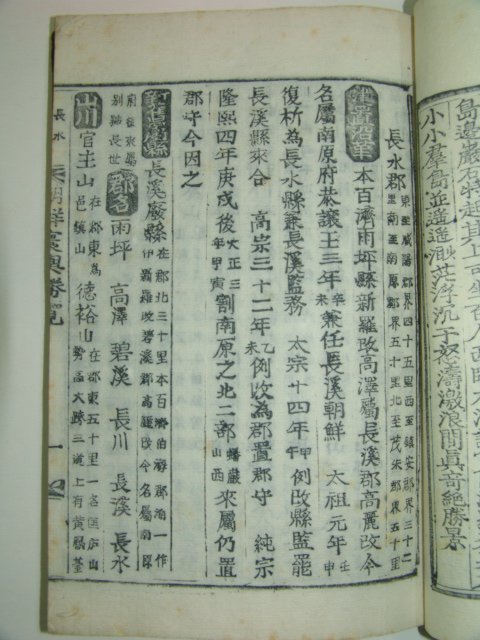 島邊巖石特起其上可坐百人西臨大海
小小羣島並遙遙莊浮沉于怒濤激浪間眞奇絶勝景
長水郡 東至咸陽郡界四十五里西至鎭安郡界三十二
里南至南原郡界五十里北至茂朱郡界五十里
建置沿革 本百濟雨坪縣新羅改高澤屬長溪郡高麗改今
名屬南原府恭讓王三年辛未兼任長溪朝鮮 太祖元年壬申
復析爲長水縣兼長溪監務 太宗十四年甲午例改縣監罷
長溪縣來合 高宗三十二年乙未例改爲郡置郡守 純宗
隆熙四年庚戌後大正三年甲寅割南原之北二部蟠巖山西來屬仍置
郡守今因之
長溪廢縣 在郡北三十里本百濟伯海郡海一作
伊新羅改碧溪郡高麗改今名屬南原
府後來屬
別號長世 郡名 雨坪 高澤 碧溪 長川 長溪 長水
山川 官主山 在郡東爲
邑鎭山 德裕山 在郡東五十里一名匡庐山
勢高大跨三道上有黃
長水 朝鮮寰輿勝覽 一